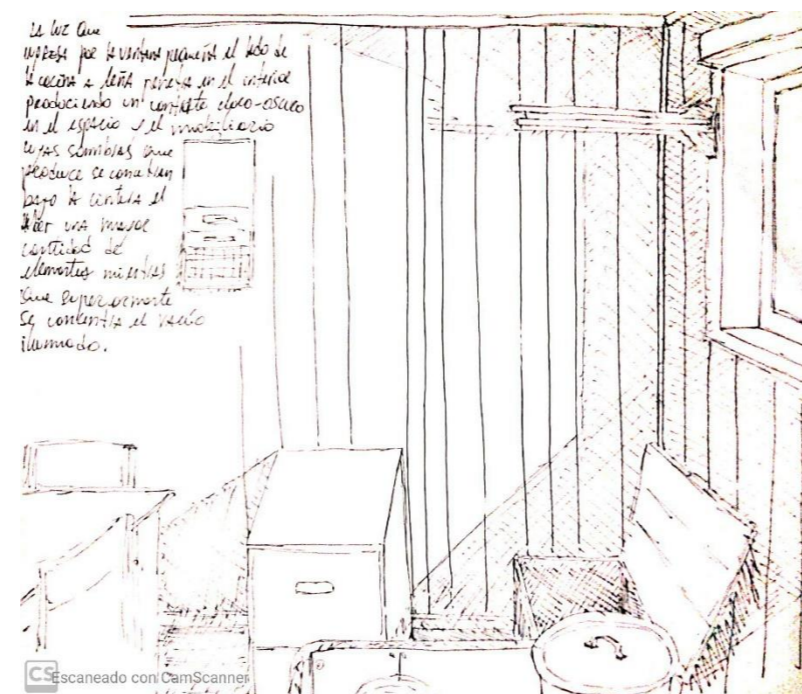 La luz que
ingresa por la ventana pequeña al lado de
la cocina a leña penetra en el interior
produciendo un contraste claro-oscuro
en el espacio y el mobiliario
cuyas sombras que
produce se concentran
bajo la cintura al
haber una mayor
cantidad de
elementos mientras
que superiormente
se concentra el vacío
iluminado.
CS Escaneado con CamScanner